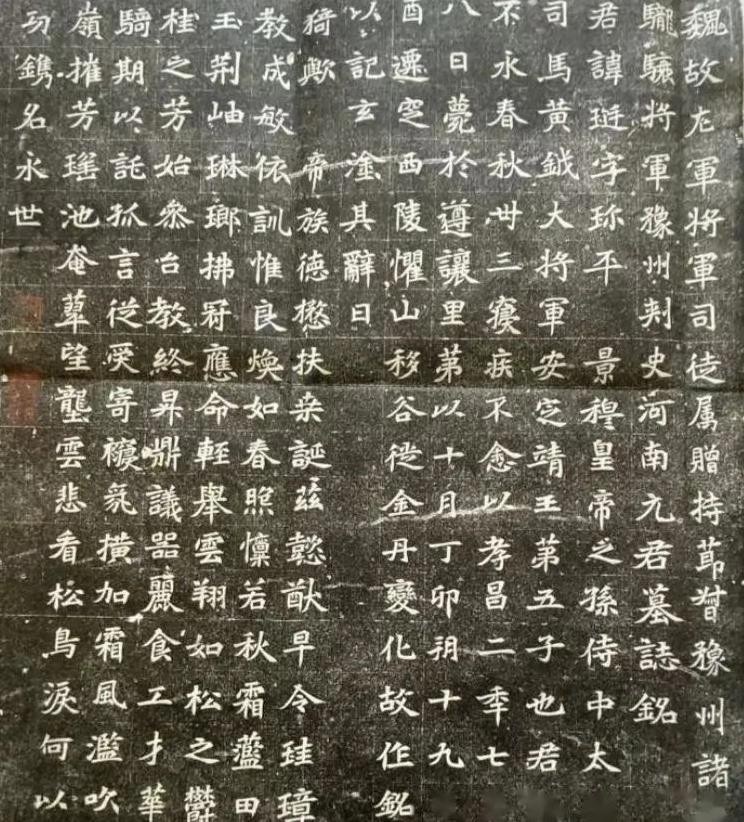 魏故左軍將軍司徒属贈持莭督豫州諸
驤將軍豫州刾史河南元君墓誌銘
君諱珽字珎平 景穆皇帝之孫侍中太
司馬黃鉞大將軍 安定靖王第五子也君
不永春秋卅三寢疾不悆以孝昌二秊七
八日薨於遵讓里第以十月丁卯朔十九
酉遷窆西陵懼山移谷徙金丹變化故作銘
以記玄塗其辭曰
猗歟 帝族德懋扶桒誕茲懿猷早令珪璋
教成敏依訓惟良煥如春煦懔若秋霜藍田
玉荊岫琳瑯拂冠應命輕舉雲翔如松之欝
桂之芳始叅台教終昇鼎議器麗食工才華
騎期以託孤言從受寄氛橫加霜風濫吹
嶺摧芳瑤池奄望壟雲悲看松鳥淚何以
功鐫名永世